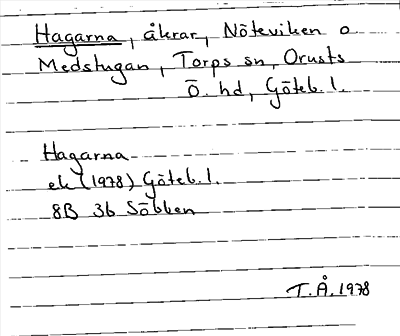 Hagarna, åkrar, Nöteviken o
Medstugan, Torps sn, Orusts
Ö. hd, Göteb. l.
Hagarna
ek (1978) Göteb. l.
8B 3b Säbben
T. Å. 1978